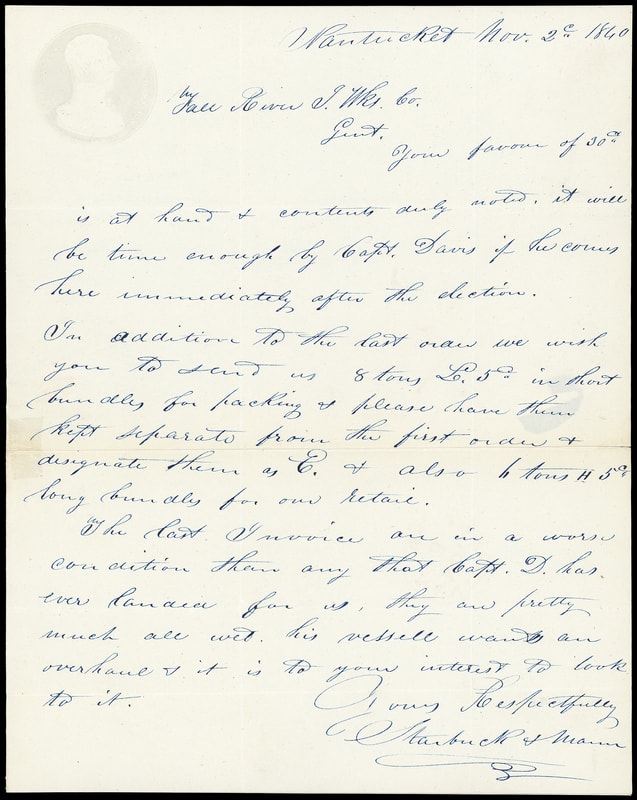 Nantucket Nov. 2d 1840
Fall River I. Wks. Co.
Gent.
Your favour of 30th
is at hand & contents duly noted. it will
be time enough by Capt. Davis if he comes
here immediately after the election.
In addition to the last order we wish
you to send us 8 tons 5d in short
bundles for packing & please have them
kept separate from the first order &
designate them as E. & also tons 5d
long bundles for our retail.
The last Invoice are in a worse
condition than any that Capt. D. has
ever landed for us, they are pretty
much all wet. his vessell wants an
overhaul & it is to your interest to look
to it.
Yours Respectfully
Starbuck & Mann